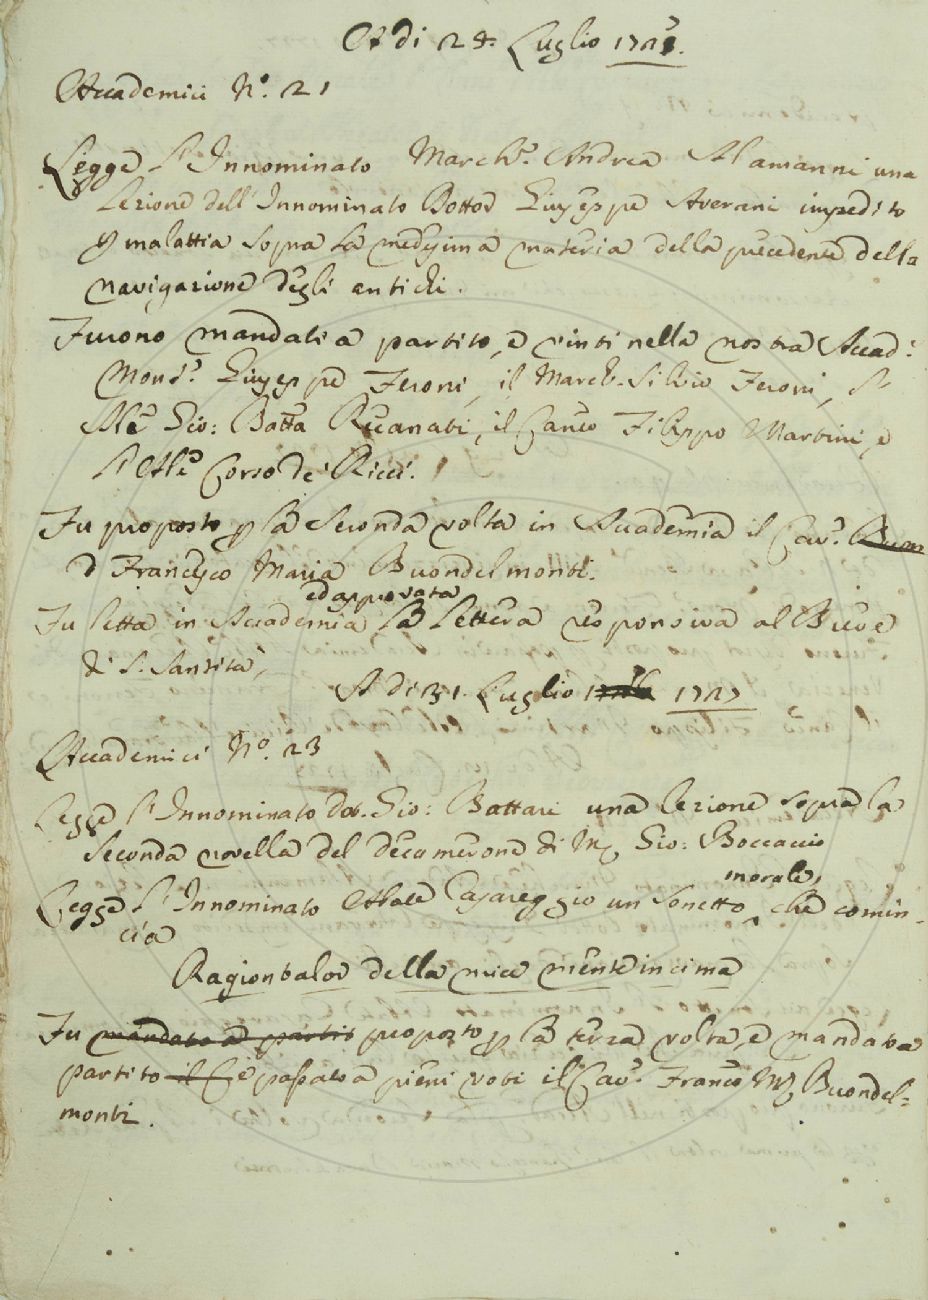 A dì 24. Luglio 1727.
Accademici N.o 21
Legge l'Innominato March.e Andrea Alamanni una
lezione dell'Innominato Dottor Giuseppe Averani impedito
p malattia sopra la medesima materia della precedente della
navigazione degli antichi.
Furono mandati a partito, e vinti nella nostra Accad.a
Mons.r Giuseppe Feroni, il March. Silvio Feroni, l'
Ab.e Gio: Batta Ricanati, il Can.co Filippo Martini, e
l'Ab.e Corso de' Ricci.
Fu proposto p la seconda volta in Accademia il Cav.r Buon
Francesco Maria Buondelmonti.
ed approvata
Fu letta in Accademia la lettera responsiva al Breve
di S. Santità,
A dì 31. Luglio 1727
Accademici N.o 23
Legge l'Innominato dot. Gio: Bottari una lezione sopra la
seconda novella del decamerone di M. Gio: Boccaccio
morale,
Legge l'Innominato Abate Casareggio un sonetto che comin-
cia
Ragion talor della mia mente in cima
Fu mandato a partit proposto p la terza volta, e mandato a
partito il C e passato a pieni voti il Cav.r Fran.co M.a Buondel=
monti.